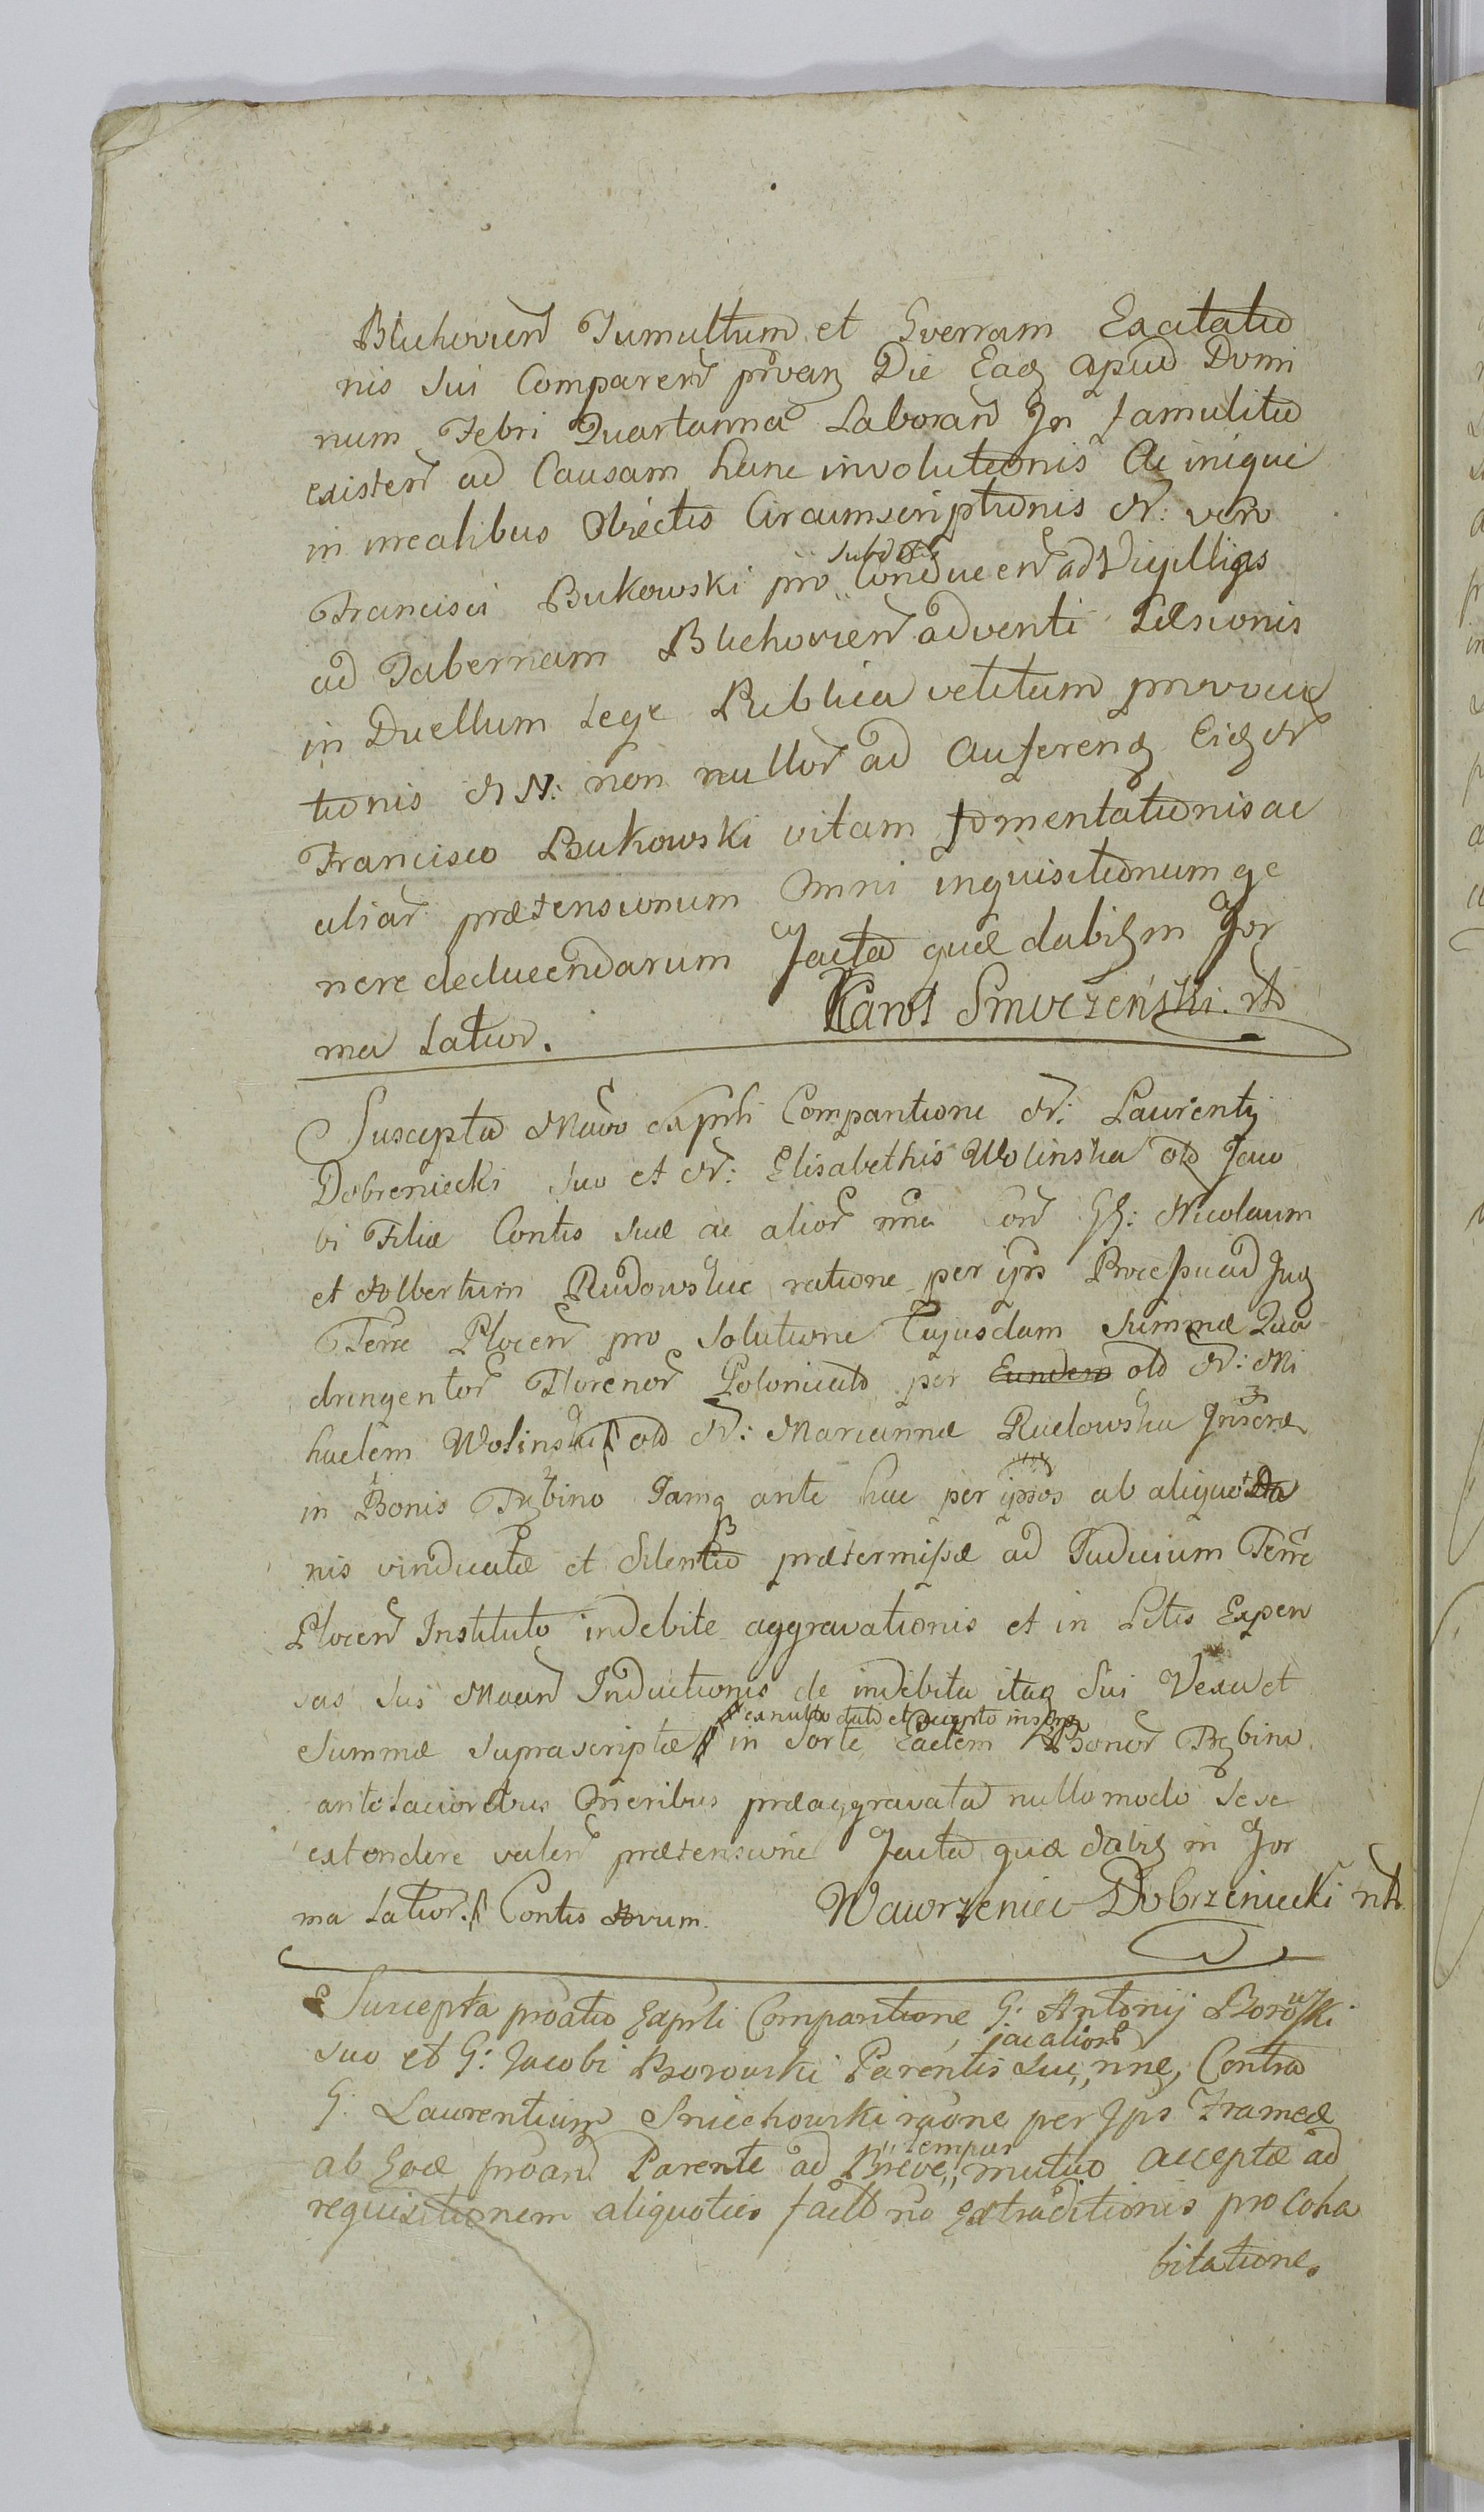 Blichovien Tumultum et Gverram Excitatio
nis sui Comparen privan Die Eadem apud Domi
num Febri Quartanna Laboran In famulitio
existen ad Causam hanc involutionis Ac iniqui
in irrealibus Obiectis Circumscriptionis N: vero
Francisci Bukowski pro Conducen ad Vigillias
ad Tabernam Blichovien adventi Læsionis
in Duellum Lege Publica vetitum provoca
tionis NN: non nullor ad auferend Eid N
Francisco Bukowski vitam fomentationis ac
aliar prætensionum Omni inquisitionum ge
nere deducendarum Jacta quæ dabit in For
ma Latior. Karol Smorzeński
Suscepta Mavo Exprli Compantione N: Laurentij
Dobreniecki suo et N: Elisabethis Wolinska old Jaco
bi Filiæ Contis suæ ac alior nne con GG: Nicolaum
et Albertum Rudowskie ratione per ips Processu ad Jud
Terre Plocen pro Solutione Cujusdam Summæ Qua
dringentor Florenor Polonical per Eundem old N: Mi
haelem Wolinski old N: Mariannæ Rudowska Inscræ
in Bonis Trzbino Jamq ante hac per ipsos ab aliquot An
nis vindicatæ et Silentio prætermissæ ad Judicium Terre
Plocen Instituto indebite aggravationis et in Litis Expen
sas sus Moven Inductionis de indebita itaq sui Vexa et
ex nullo dato et accepto inscræ
Summæ suprascriptæ in sorte Eadem Bonor Trzbino
antelacioribus Oneribus præaggravata nullo modo sese
extendere valen prætensione Jacta quæ dabit in For
ma Latior. Contis Avum. Wawrzeniec Dobrzeniecki
Suscepta proatio Exprli Compantione G: Antonij Borowski
jac alior
suo et G: Jacobi Borowski Parentis sui, nne, Contra
G: Laurentium Sniechowski raone per Ips Frameæ
tempus
ab Eode proand Parente ad Breve mutuo acceptæ ad
requisitionem aliquoties fact no Extraditionis pro Coha
bitatione.